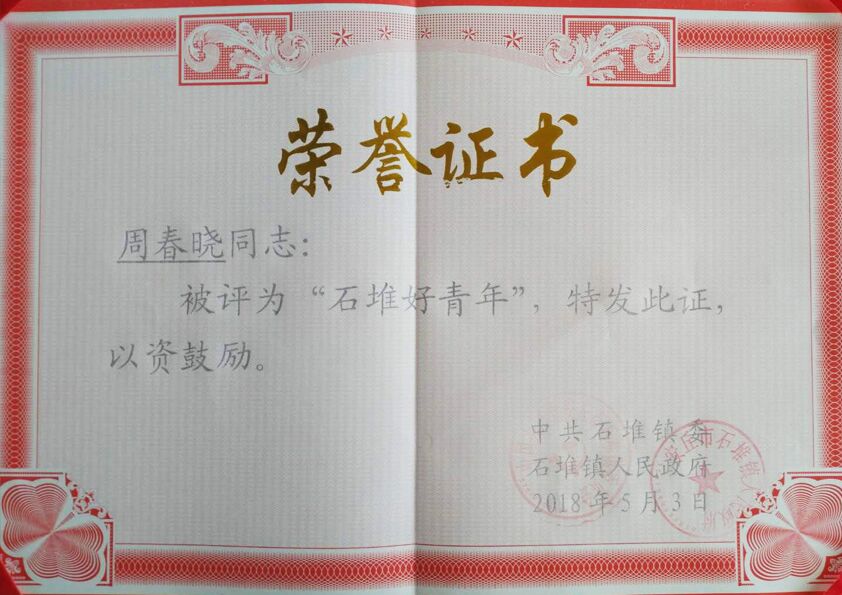 荣誉证书
周春晓同志：
被评为“石堆好青年”，特发此证，
以资鼓励。
中共石堆镇委
石堆镇人民政府
2018年5月3日